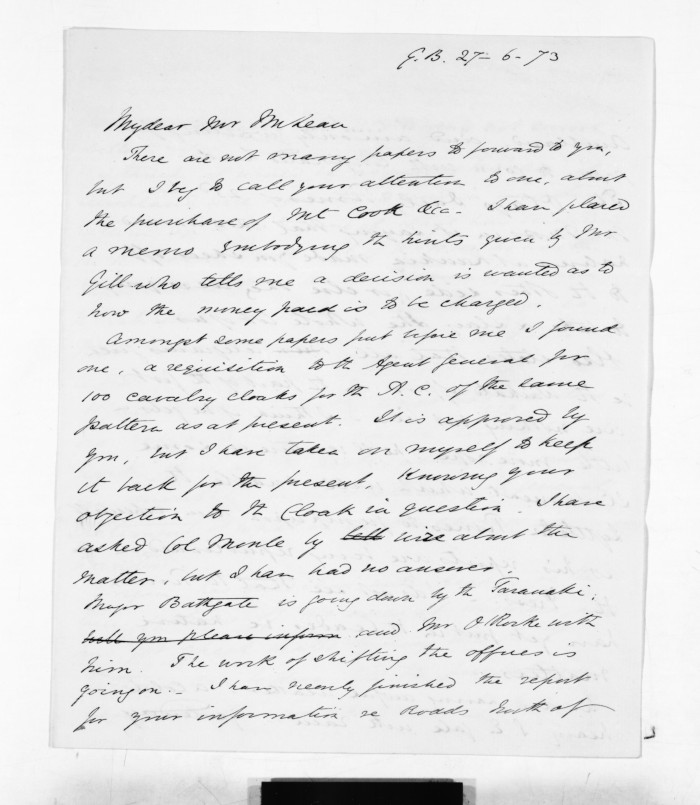 G.B. 27-6-73
My dear Mr McLean
There are not many papers to forward to you,
but I beg to call your attention to one, about
the purchase of Mt Cook &cc - I have placed
a memo embodying the hints given by Mr
Gill who tells me a decision is wanted as to
how the money paid is to be charged.
Amongst some papers put before me I found
one, a requisition to the Agent General for
100 cavalry cloaks for the A.C. of the same
pattern as at present. It is approved by
you, but I have taken on myself to keep
it back for the present, knowing your
objection to the cloak in question. I have
asked Col Moule by tell wire about the
matter, but I have had no answer.
Major Bathgate is going down by the Taranaki,
will you please inform and Mr O'Rorke with
him. The work of shifting the offices is
going on. - I have nearly finished the report
for your information re Roads North of